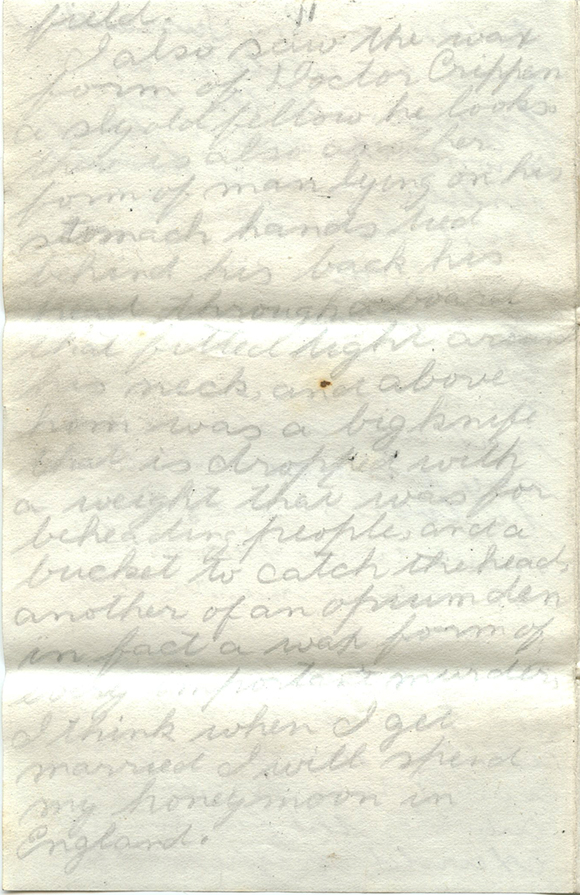 field.
11
I also saw the wax
form of Doctor Crippen
a sly old fellow he looks
there is also another
form of man lying on his
stomach hands tied
behind his back his
head through a board
that fitted tight around
his neck, and above
him was a big knife
that is dropped with
a weight that was for
beheading people, and a
bucket to catch the heads
another of an opium den
in fact a wax form of
every important murder,
I think when I get
married I will spend
my honeymoon in
England.